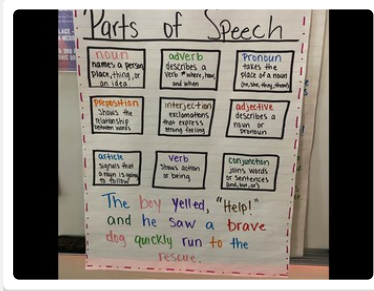 Parts of Speech
noun
names a person,
place, thing, or
an idea
adverb
describes a
verb *where, how,
and when
Pronoun
takes the
place of a noun
(he, she, they, them)
Preposition
shows the
relationship
between words
interjection
exclamations
that express
strong feeling
adjective
describes a
noun or
pronoun
article
signals that
a noun is going
to follow
verb
shows action
or being
conjunction
joins words
or sentences
(and, but, or)
The boy yelled, "Help!"
and he saw a brave
dog quickly run to the
rescue.